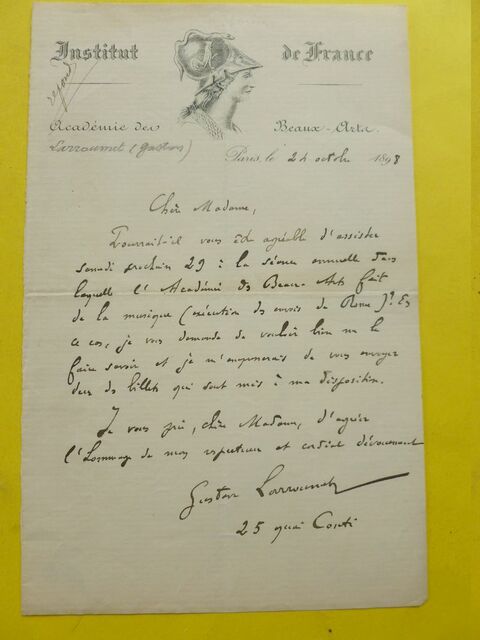 Institut de France
répond
Académie des Beaux-Arts.
Larroumet (Gustave)
Paris, le 24 octobre 1898
Chère Madame,
Pourrait-il vous être agréable d'assister
samedi prochain 29 à la séance annuelle dans
laquelle l'Académie des Beaux-Arts fait
de la musique (exécution des envois de Rome)? En
ce cas, je vous demande de vouloir bien me le
faire savoir et je m'empresserais de vous envoyer
deux des billets qui sont mis à ma disposition.
Je vous prie, chère Madame, d'agréer
l'hommage de mon respectueux et cordial dévouement
Gustave Larroumet
25 quai Conti